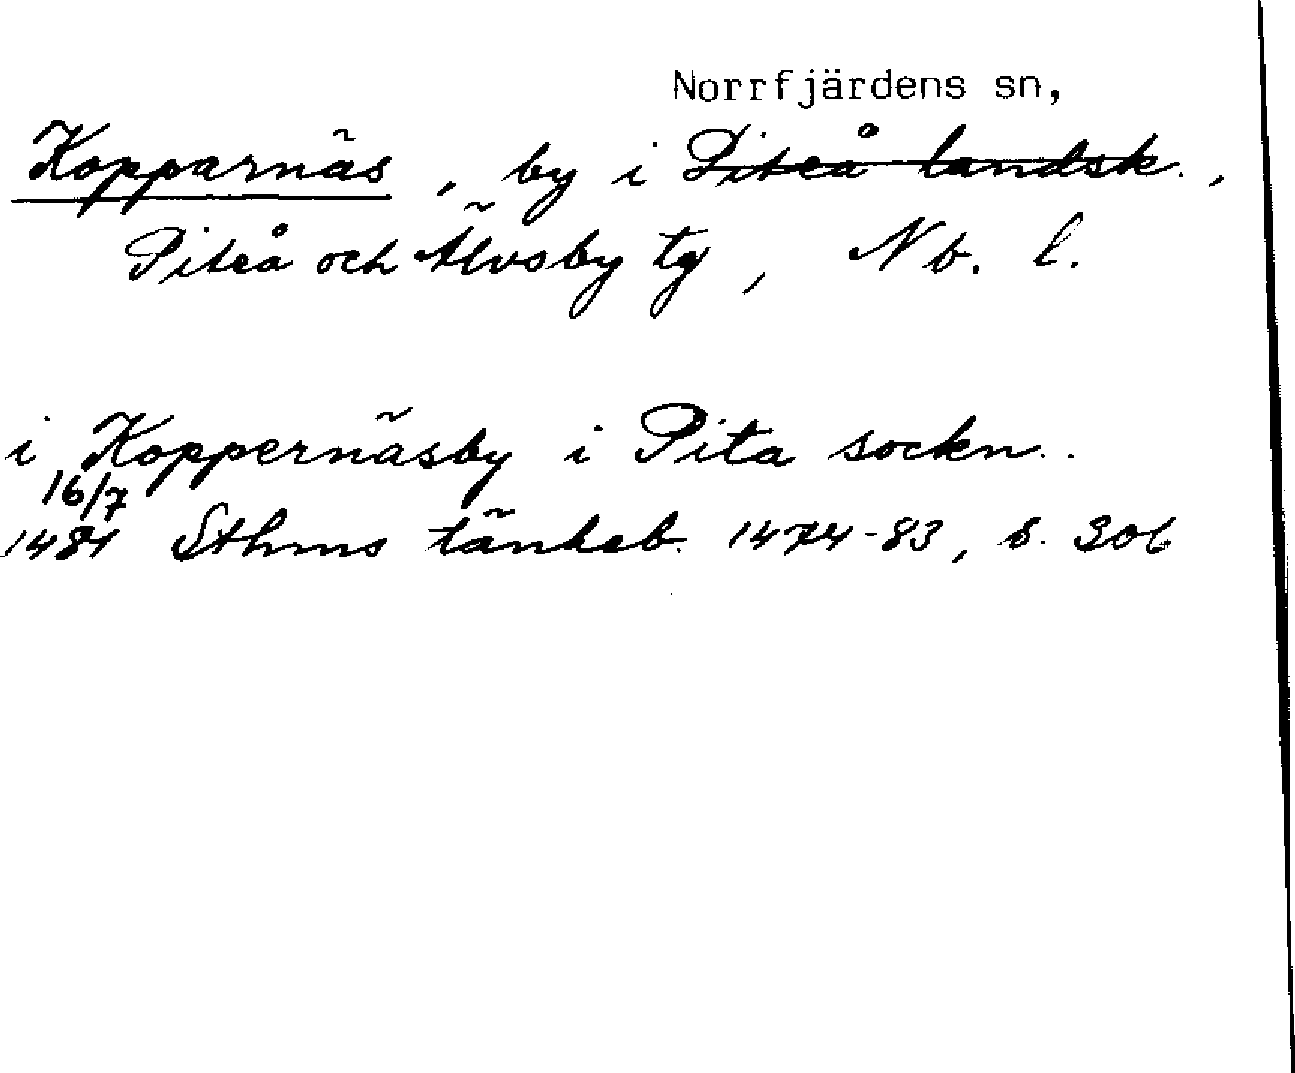 Norrfjärdens sn,
Kopparnäs, by i Piteå landsk.,
Piteå och Älvsby tg, Nb. l.
i Koppernäsby i Pita sockn..
16/7
1481 Sthms tänkeb. 1474-83, s. 306